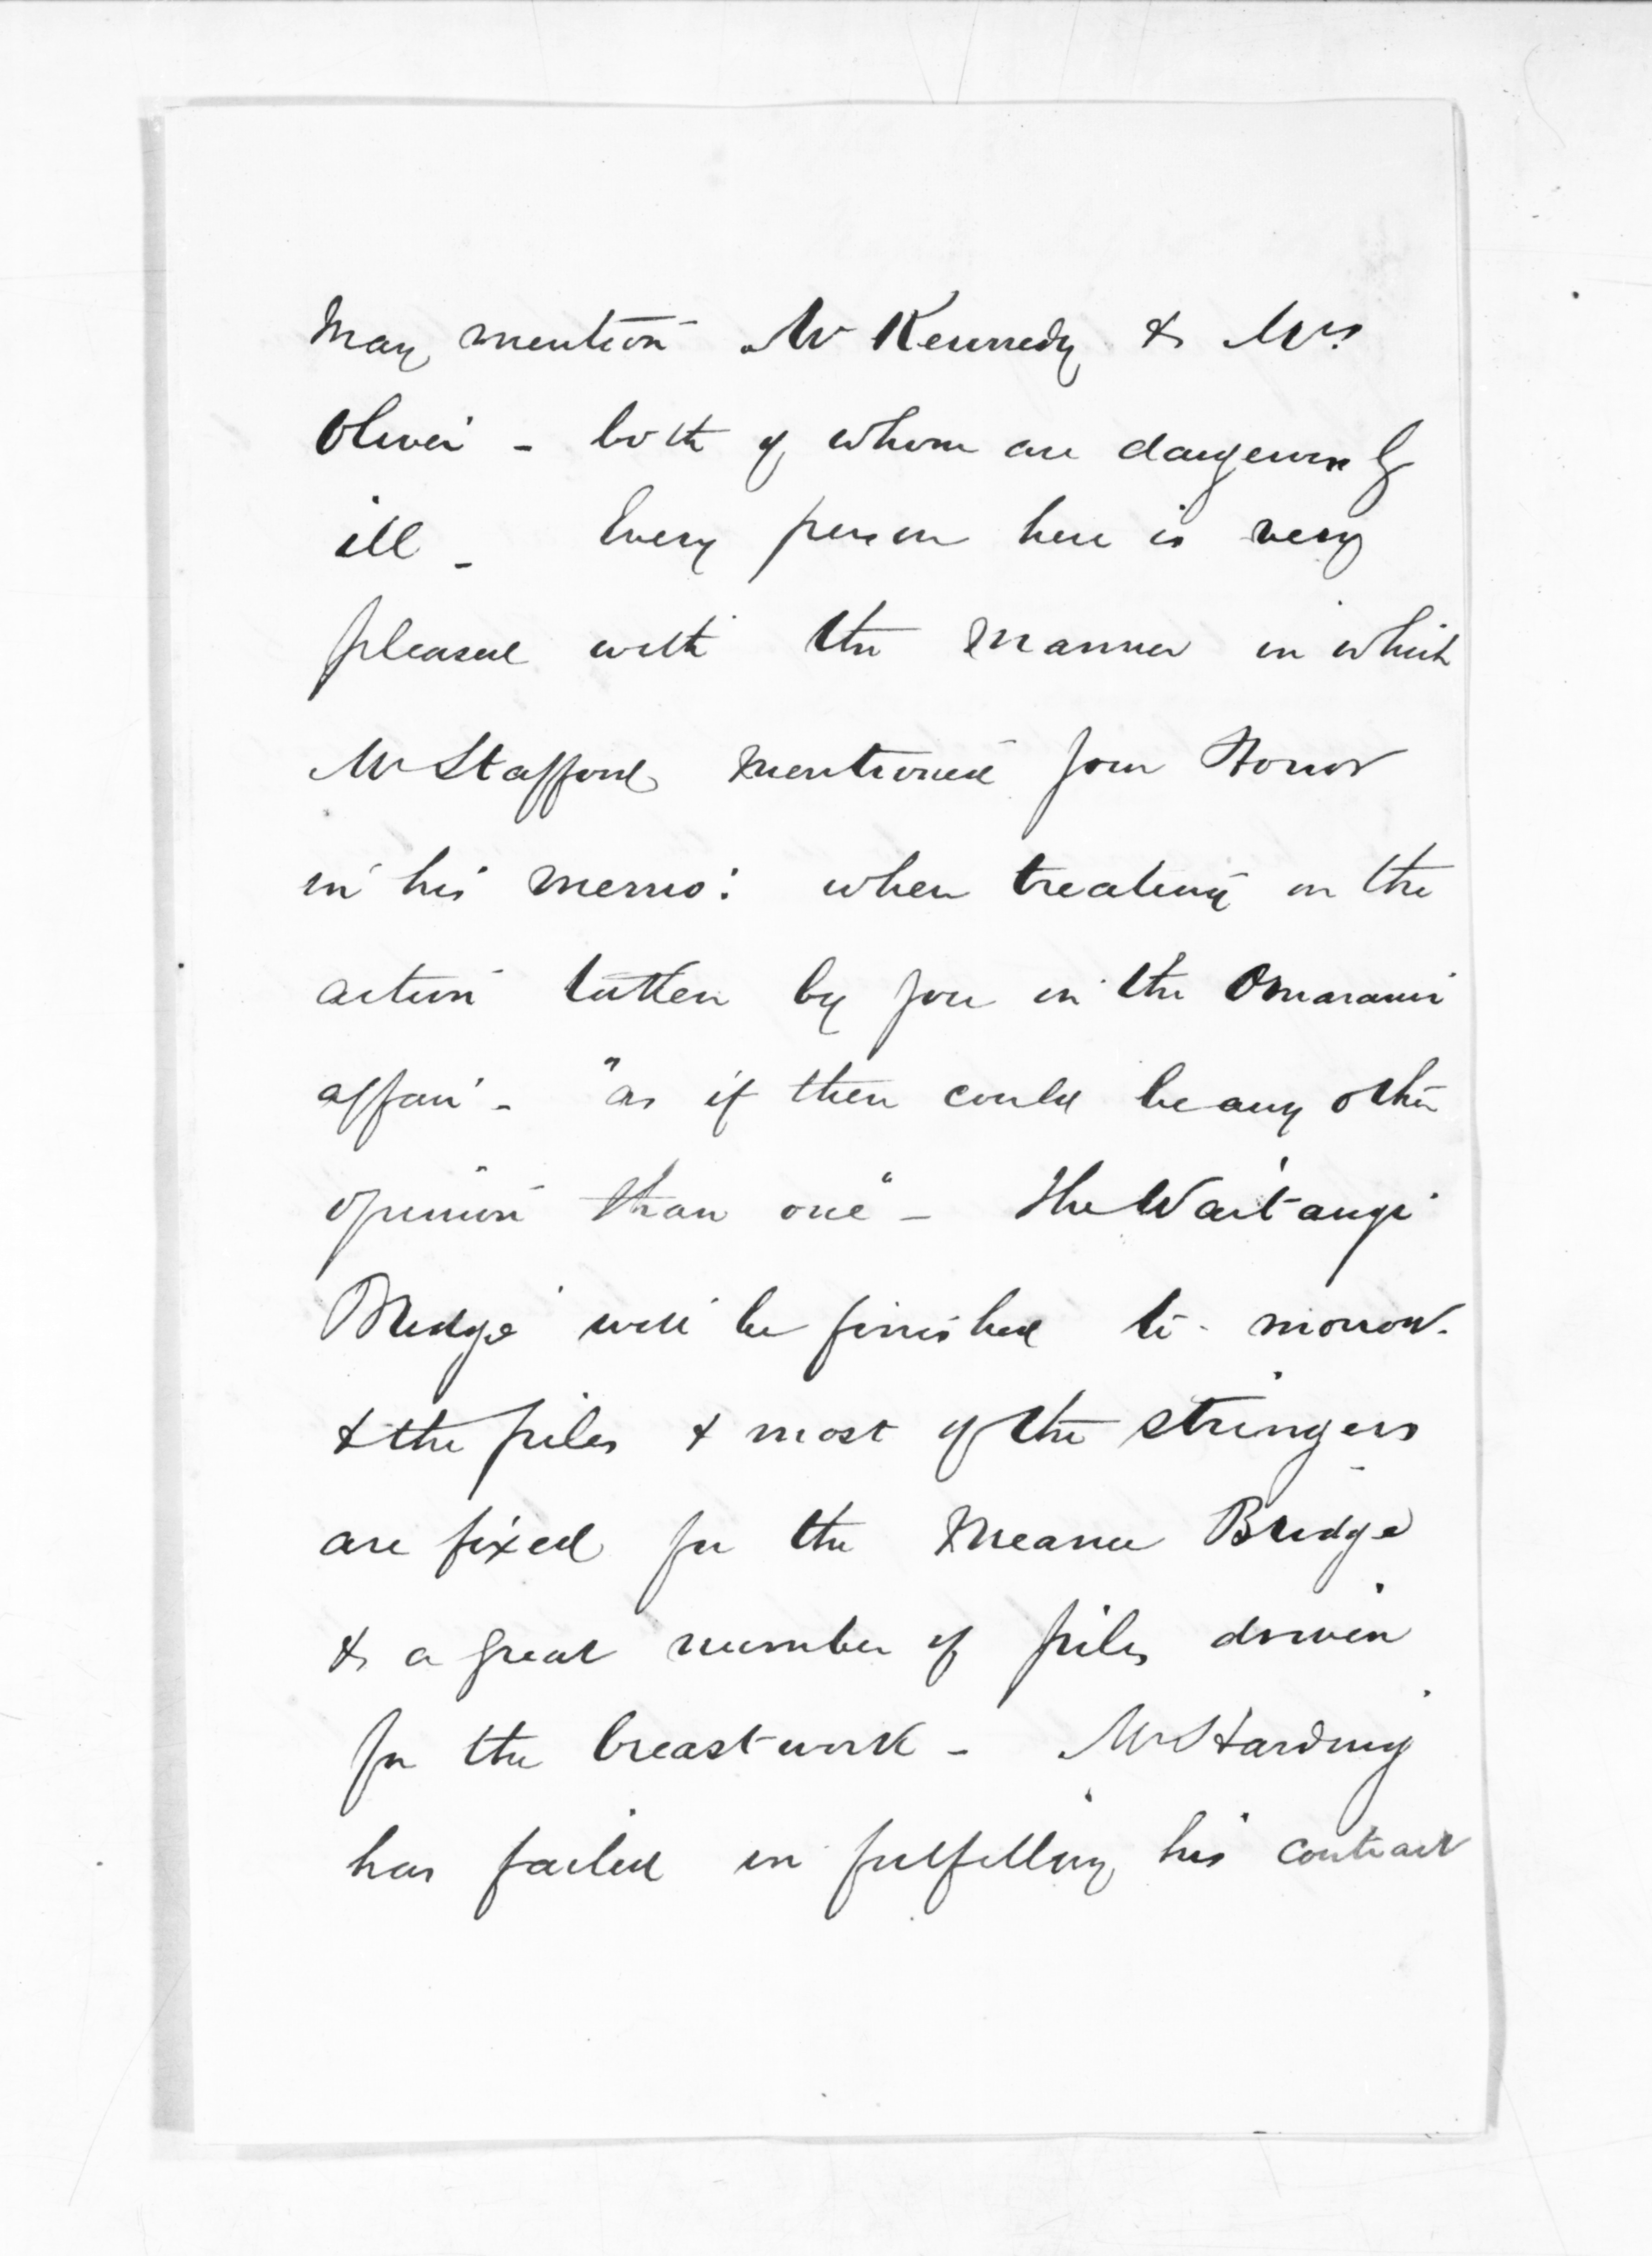 may mention Mr Kennedy & Mrs
Oliver - both of whom are dangerously
ill - Every person here is very
pleased with the manner in which
Mr Stafford mentioned your Honor
in his memo: when treating on the
action taken by you in the Omarunui
affair - "as if there could be any other
opinion than one" - The Waitangi
Bridge will be finished to-morrow.
& the piles & most of the stringers
are fixed for the Meanee Bridge
& a great number of piles driven
for the breastwork - Mr Harding
has failed in fulfilling his contract